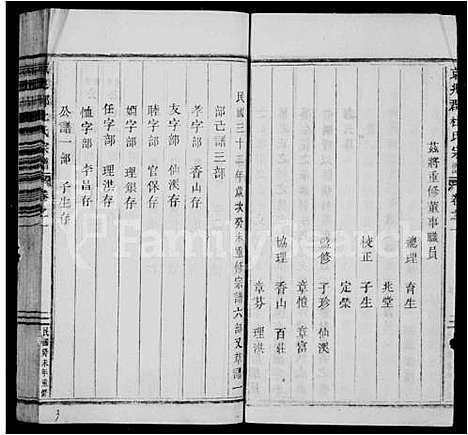 茲將重修董事職員
總理 育生
兆堂
校正 子生
定榮
監修 于珍 仙溪
章愷 章富
協理 香山 百莊
章芬 理淇
民國三十二年歲次癸未重修宗譜六部又草譜一
部己譜三部
孝字部 香山存
友字部 仙溪存
睦字部 官保存
婣字部 理銀存
任字部 理淇存
恤字部 李昌存
公譜一部 子生存
民國癸未年重修
FamilySearch